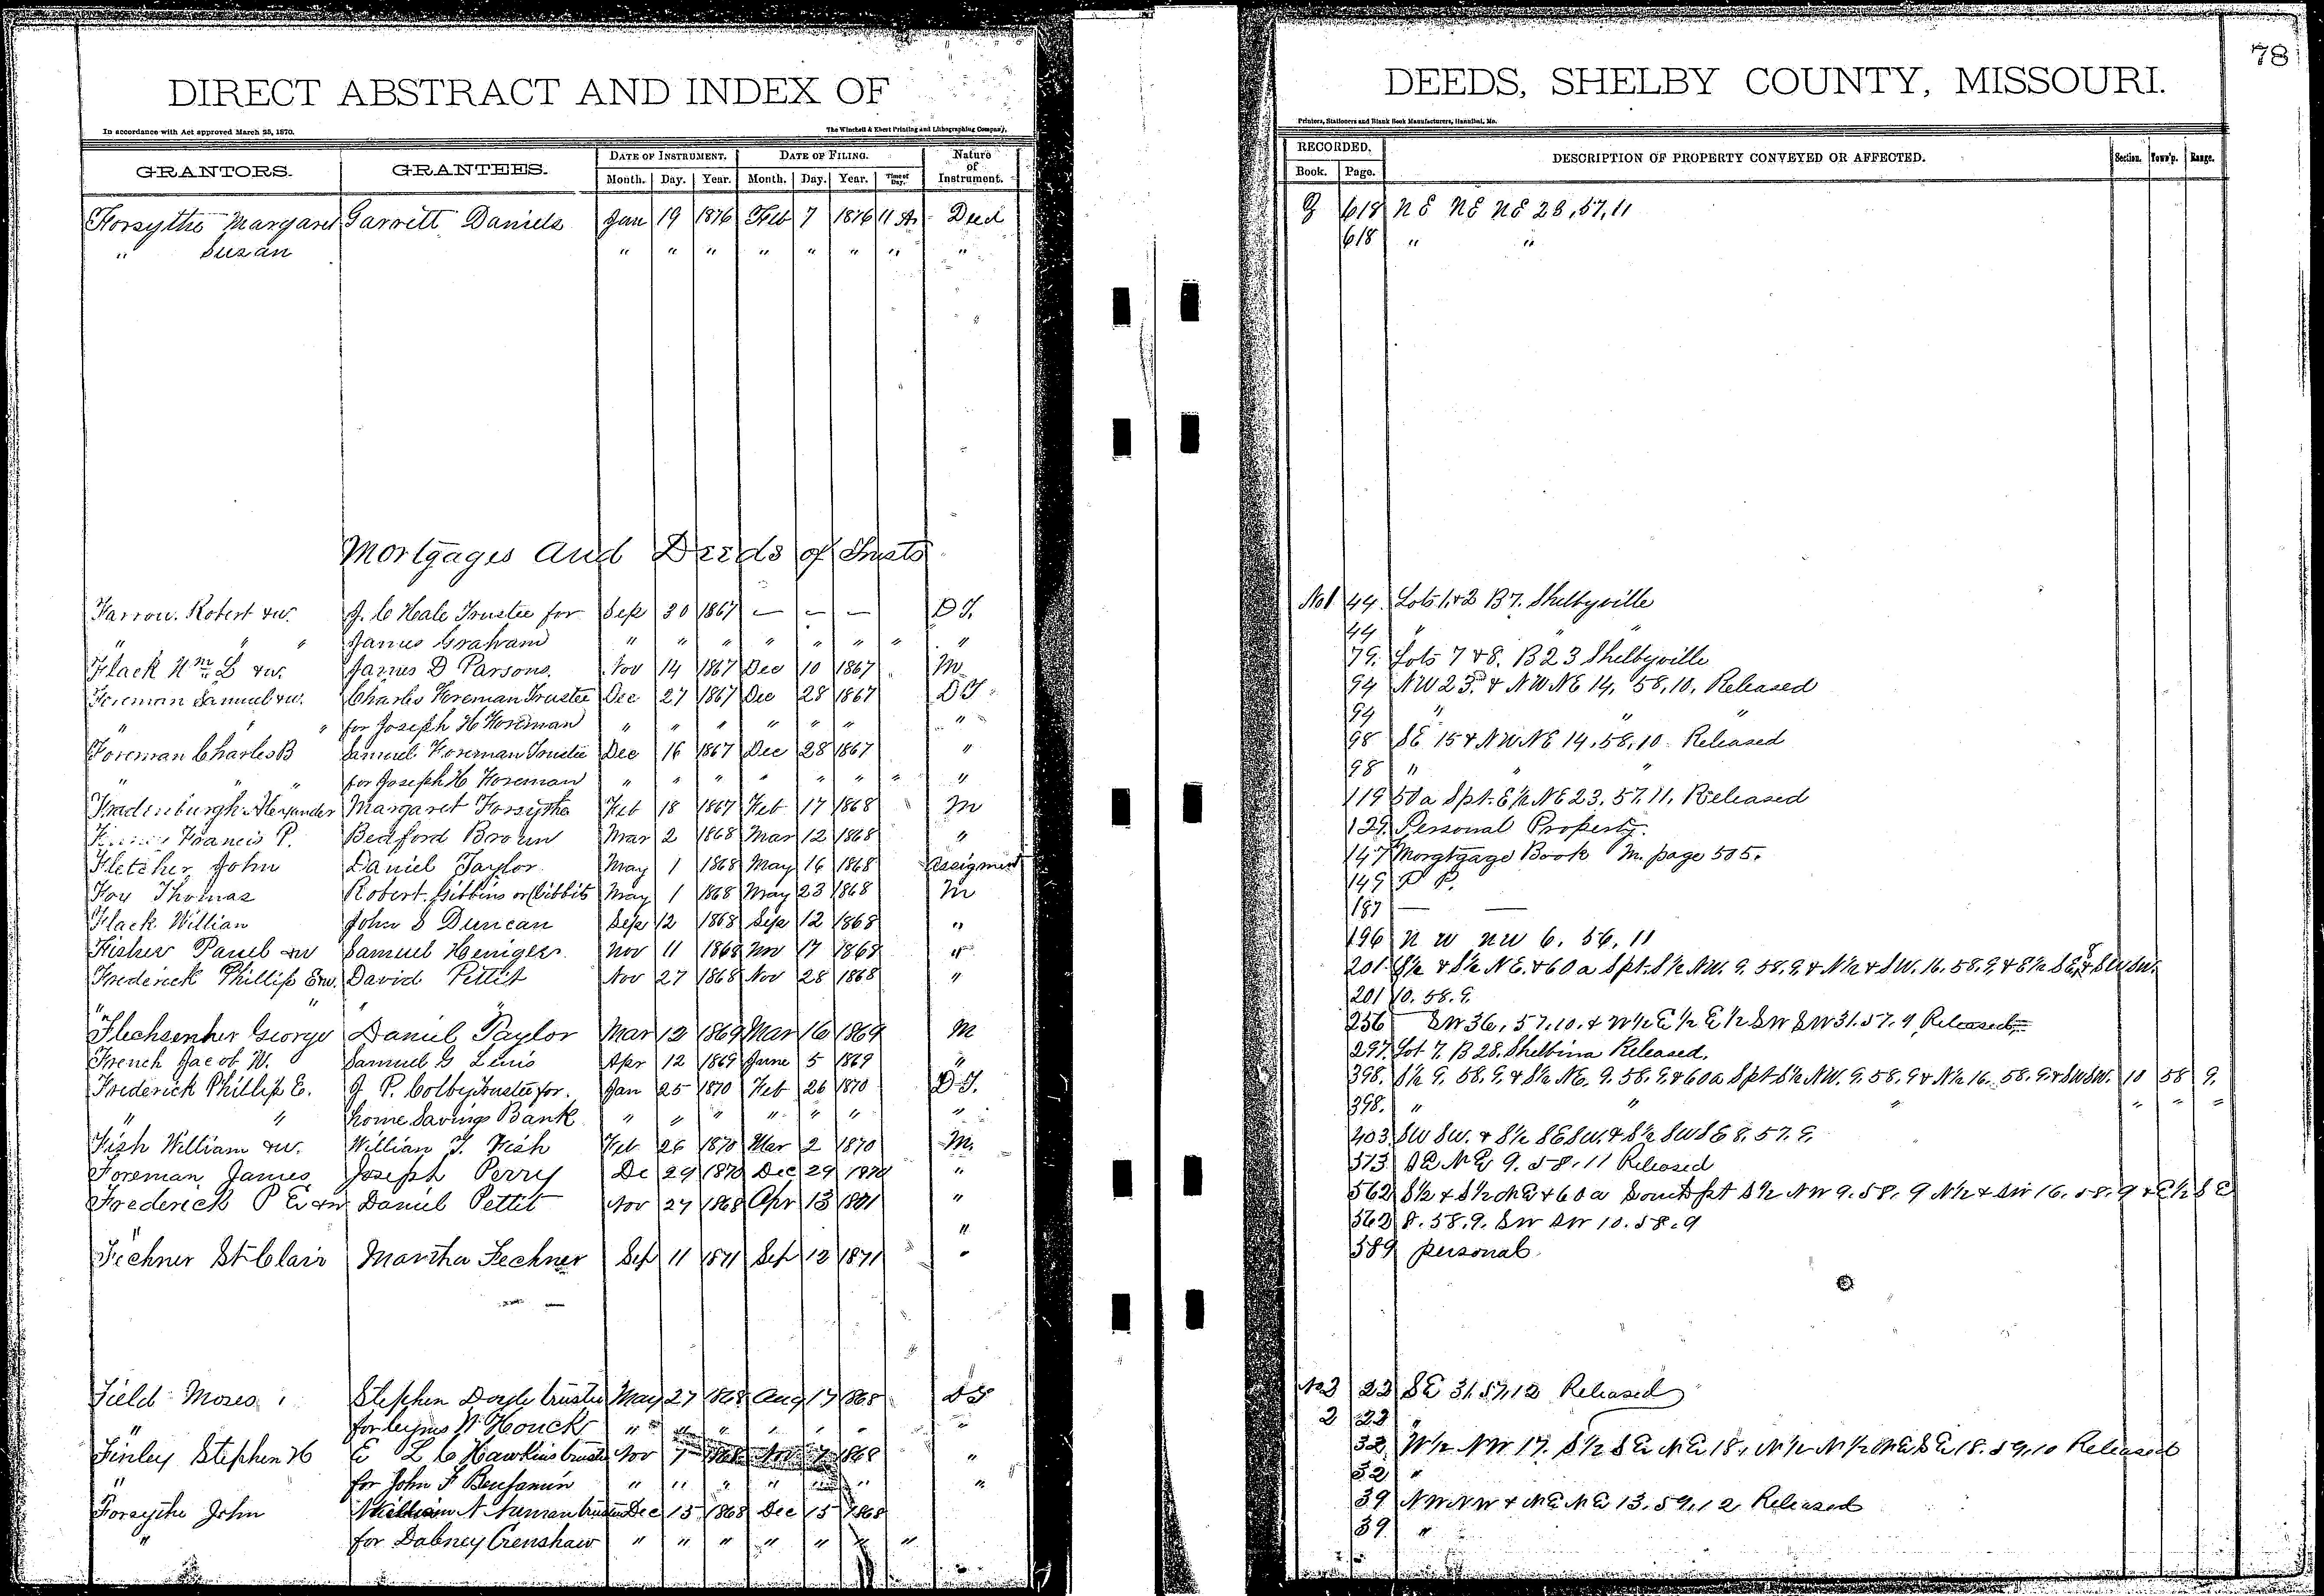 78
DIRECT ABSTRACT AND INDEX OF DEEDS, SHELBY COUNTY, MISSOURI.
In accordance with Act approved March 25, 1870. The Winchell & Ebert Printing and Lithographing Company, Printers, Stationers and Blank Book Manufacturers, Hannibal, Mo.
GRANTORS. GRANTEES. DATE OF INSTRUMENT. DATE OF FILING. Nature of Instrument. RECORDED. DESCRIPTION OF PROPERTY CONVEYED OR AFFECTED. Section. Town'p. Range.
Month. Day. Year. Month. Day. Year. Time of Day. Book. Page.
Forsythe Margaret Garrett Daniels Jan 19 1876 Feb 7 1876 11 A. Deed 618 NE NE NE 28, 57, 11
" Susan " " " " " " " " 618 " "
Mortgages and Deeds of Trusts
Farrow. Robert &w. J. C. Hale Trustee for Sep 30 1867 — — — DT. No1 44 Lots 1 & 2 B 7. Shelbyville
" " " James Graham " " " " " " " " 44 "
Flack Wm L &w. James D Parsons. Nov 14 1867 Dec 10 1867 M 79. Lots 7 & 8. B 23 Shelbyville
Foreman Samuel &w. Charles Foreman Trustee Dec 27 1867 Dec 28 1867 DT. 94 NW 23. & NW NE 14, 58, 10, Released
" " " for Joseph H Foreman " " " " " " " 94 " " "
Foreman Charles B Samuel Foreman Trustee Dec 16 1867 Dec 28 1867 " 98 SE 15 & NW NE 14, 58, 10. Released
" " for Joseph H Foreman " " " " " " " " 98 " " "
Fradenburgh Alexander Margaret Forsythe Feb 18 1867 Feb 17 1868 M 119 50 a Spt. E½ NE 23. 57. 11. Released
Francis P. Bedford Brown Mar 2 1868 Mar 12 1868 " 129. Personal Property.
Fletcher John Daniel Taylor May 1 1868 May 16 1868 Assigment 147 Morgtgage Book M. page 505.
Foy Thomas Robert Gibbins or Gibbits May 1 1868 May 23 1868 M 149 P P.
Flack Willian John S Duncan Sep 12 1868 Sep 12 1868 " 187 — —
Fisher Paul &w Samuel Heniger Nov 11 1868 Nov 17 1868 " 196 N W NW 6. 56. 11
Frederick Phillip E &w. David Pettit Nov 27 1868 Nov 28 1868 " 201. S½ & S½ NE. & 60 a Spt. S½ NW. 9. 58. 9. & N½ & SW. 16. 58. 9. & E½ SE, 8 & SW SW.
" " 201 10. 58. 9.
Flechsenher George Daniel Taylor Mar 12 1869 Mar 16 1869 M 256 SW 36, 57. 10. & W½ E½ E½ SW SW 31. 57. 9 Released
French Jacob W. Samuel G Lewis Apr 12 1869 June 5 1869 " 297. Lot 7. B 28. Shelbina Released.
Frederick Phillip E. J. P. Colby Trustee for. Jan 25 1870 Feb 26 1870 DT. 398. S½ 9. 58. 9. & S½ NE. 9. 58. 9. & 60 a Spt S½ NW. 9. 58. 9 & N½ 16. 58. 9. & SW SW. 10 58 9.
" " home Savings Bank " " " " " " " 398. " " " " " "
Fish William &w. Willian T. Fish Feb 26 1870 Mar 2 1870 M. 403. SW SW. & S½ SE SW. & S½ SW SE 8. 57. 9.
Foreman James Joseph Perry De 29 1870 Dec 29 1870 " 513 SE NE 9. 58. 11 Released
Frederick P E &w Daniel Pettit Nov 27 1868 Apr 13 1871 " 562 S½ & S½ NE & 60 a South pt S½ NW 9. 58. 9 N½ & SW 16. 58. 9 & E½ SE
" " 562 8. 58. 9. SW SW 10. 58. 9
Fechner St Clair Martha Fechner Sep 11 1871 Sep 12 1871 " 589 personal
Field Moses Stephen Doyle trustee May 27 1868 Aug 17 1868 DT No 2 22 SE 31. 57. 12 Released
" for N. Houck " " " " " " " 2 22 "
Finley Stephen H E L C Hawkins trustee Nov 7 1868 Nov 7 1868 " 32 W½ NW 17. S½ SE NE 18, N½ N½ NE SE 18. 59. 10 Released
" for John F Benjamin " " " " " " " 32 "
Forsythe John Trustee Dec 15 1868 Dec 15 1868 39 NW NW & NE NE 13. 59. 12 Released
" for Dabney Crenshaw " " " " " " " 39 "